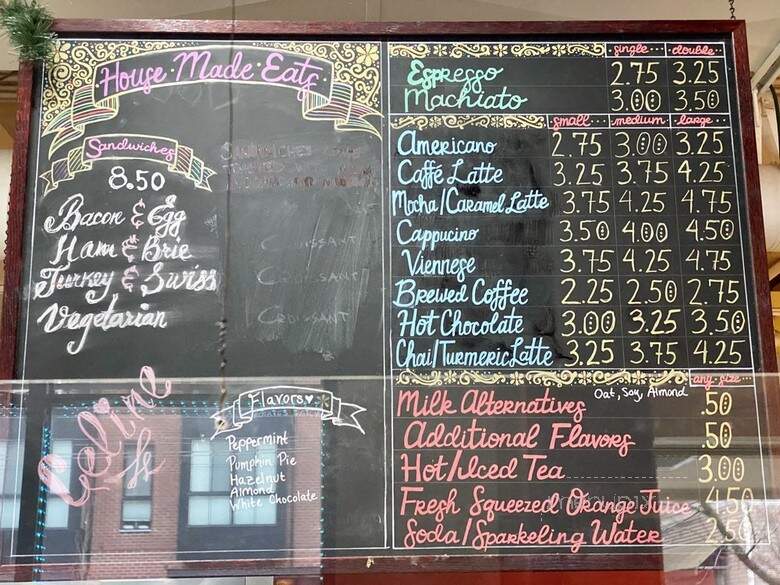 House Made Eats
Sandwiches
8.50
Bacon & Egg
Ham & Brie
Turkey & Swiss
Vegetarian
Celine
Flavors
Peppermint
Pumpkin Pie
Hazelnut
Almond
White Chocolate
single double
Espresso 2.75 3.25
Machiato 3.00 3.50
small medium large
Americano 2.75 3.00 3.25
Caffé Latte 3.25 3.75 4.25
Mocha/Caramel Latte 3.75 4.25 4.75
Cappucino 3.50 4.00 4.50
Viennese 3.75 4.25 4.75
Brewed Coffee 2.25 2.50 2.75
Hot Chocolate 3.00 3.25 3.50
Chai/Turmeric Latte 3.25 3.75 4.25
any size
Oat, Soy, Almond
Milk Alternatives .50
Additional Flavors .50
Hot/Iced Tea 3.00
Fresh Squeezed Orange Juice 4.50
Soda/Sparkeling Water 2.50